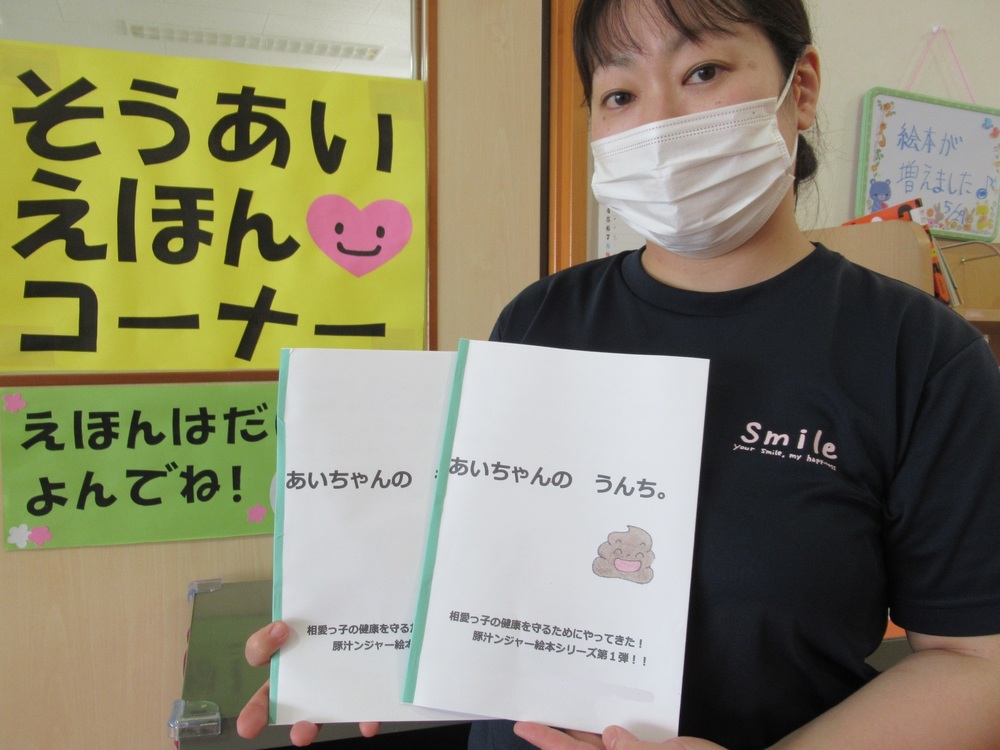 そうあい
えほん
コーナー
えほんはだ
よんでね！
絵本が
増えました
5/29
Smile
your smile, my happiness
あいちゃんの
相愛っ子の健康を守るた
豚汁ンジャー絵本
あいちゃんの　うんち。
相愛っ子の健康を守るためにやってきた！
豚汁ンジャー絵本シリーズ第１弾！！